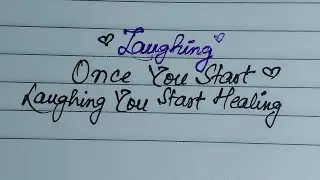 Laughing
Once You Start
Laughing You Start Healing